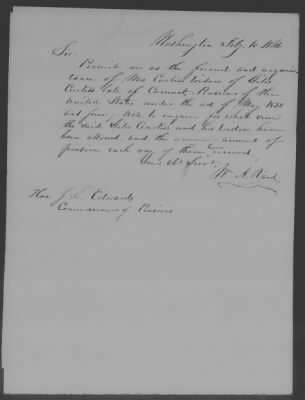 Washington Feby 10 18
Sir.
Permit me as the friend and acquain
tance of Mrs Curtiss widow of Giles
Curtiss late of Connect. Pensioner of the
United States under the act of May 1828
and June 1832 to enquire for what sum
the said Giles Curtiss and his widow have
been allowed and the annual amount of
pension each one of them received.
Your Obt Servt,
W. A.
Hon J L Edwards
Commissioner of Pensions